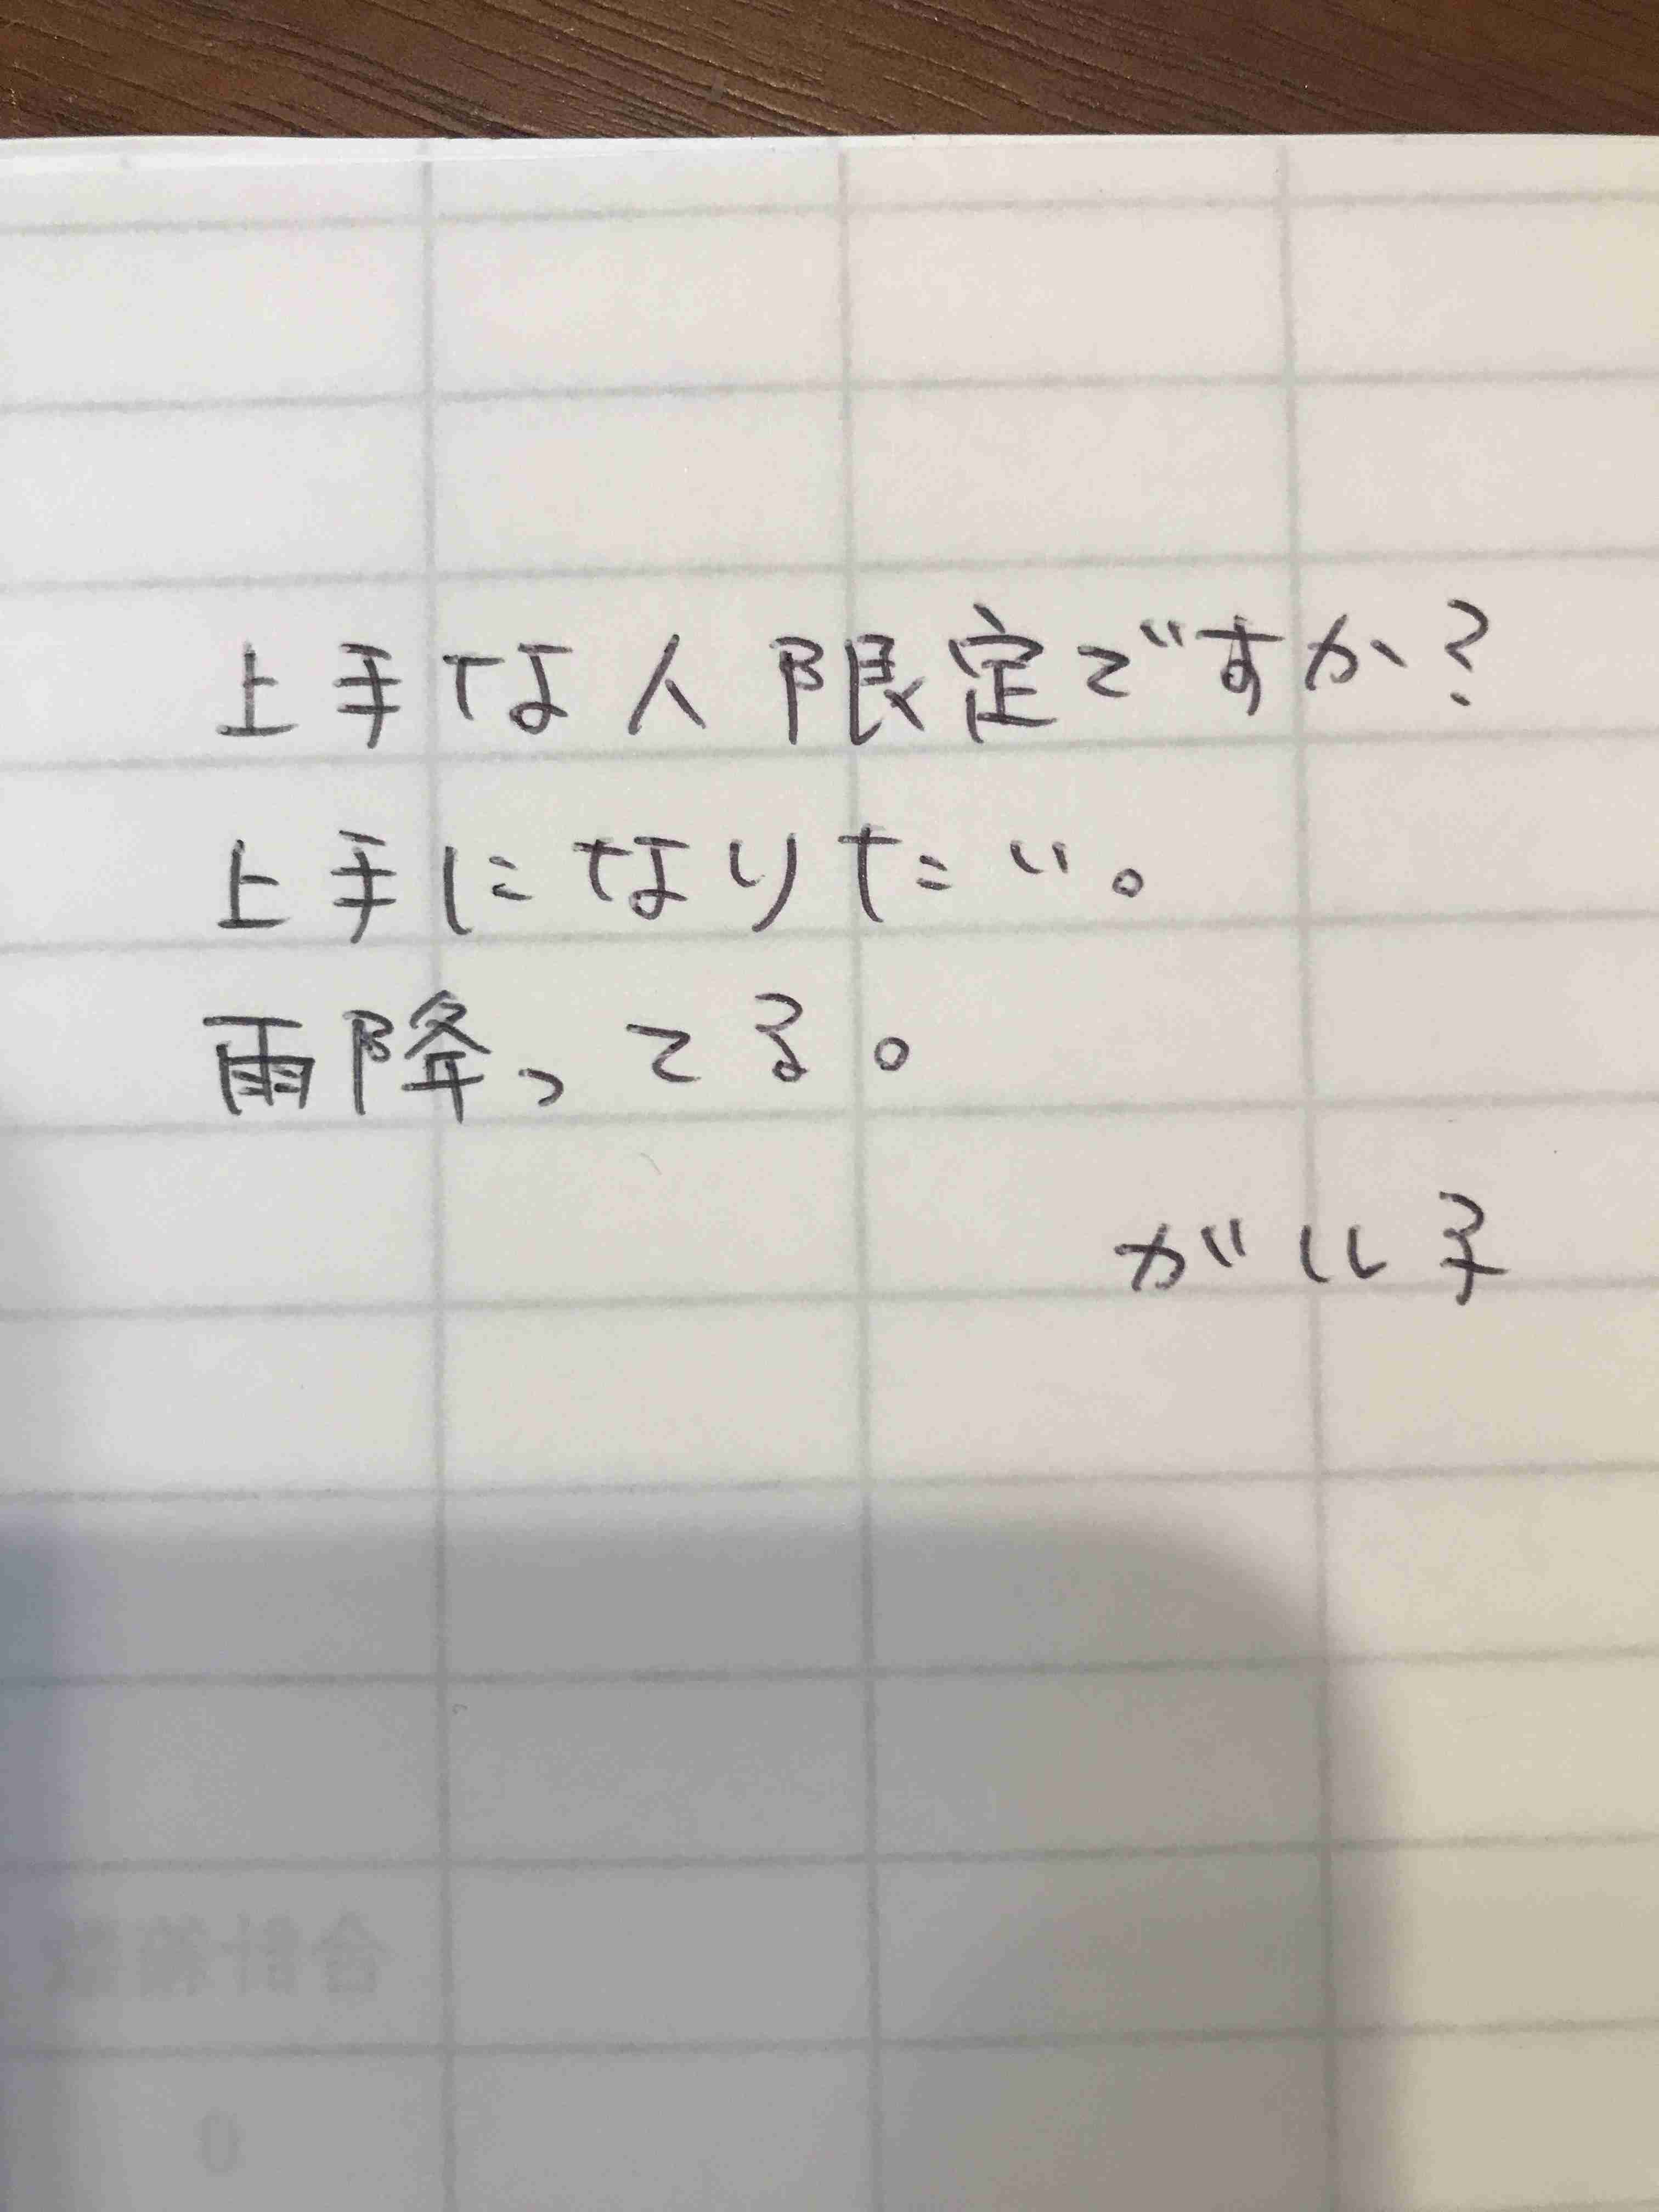 上手な人限定ですか?
上手になりたい。
雨降ってる。
がル子
合計箱数
0